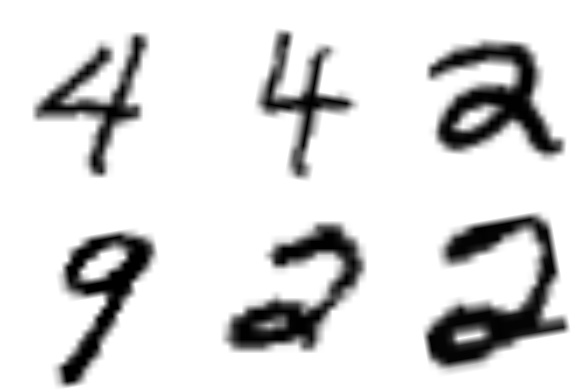 4 4 2
9 2 2